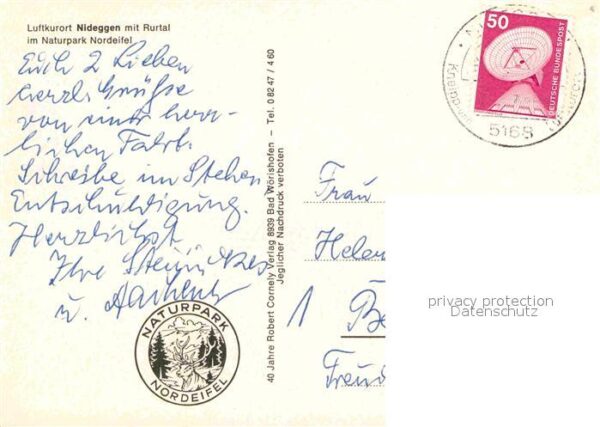 Luftkurort Nideggen mit Rurtal
im Naturpark Nordeifel
Euch 2 Lieben
herzl. Grüße
von einer herr-
lichen Fahrt.
Schreibe im Stehen
Entschuldigung.
Herzlichst
Ihre
u.
NATURPARK
NORDEIFEL
40 Jahre Robert Cornely Verlag 8939 Bad Wörishofen - Tel. 08247 / 460
Jeglicher Nachdruck verboten
50
DEUTSCHE BUNDESPOST
5168
Frau
Helen
1
privacy protection
Datenschutz
Freud